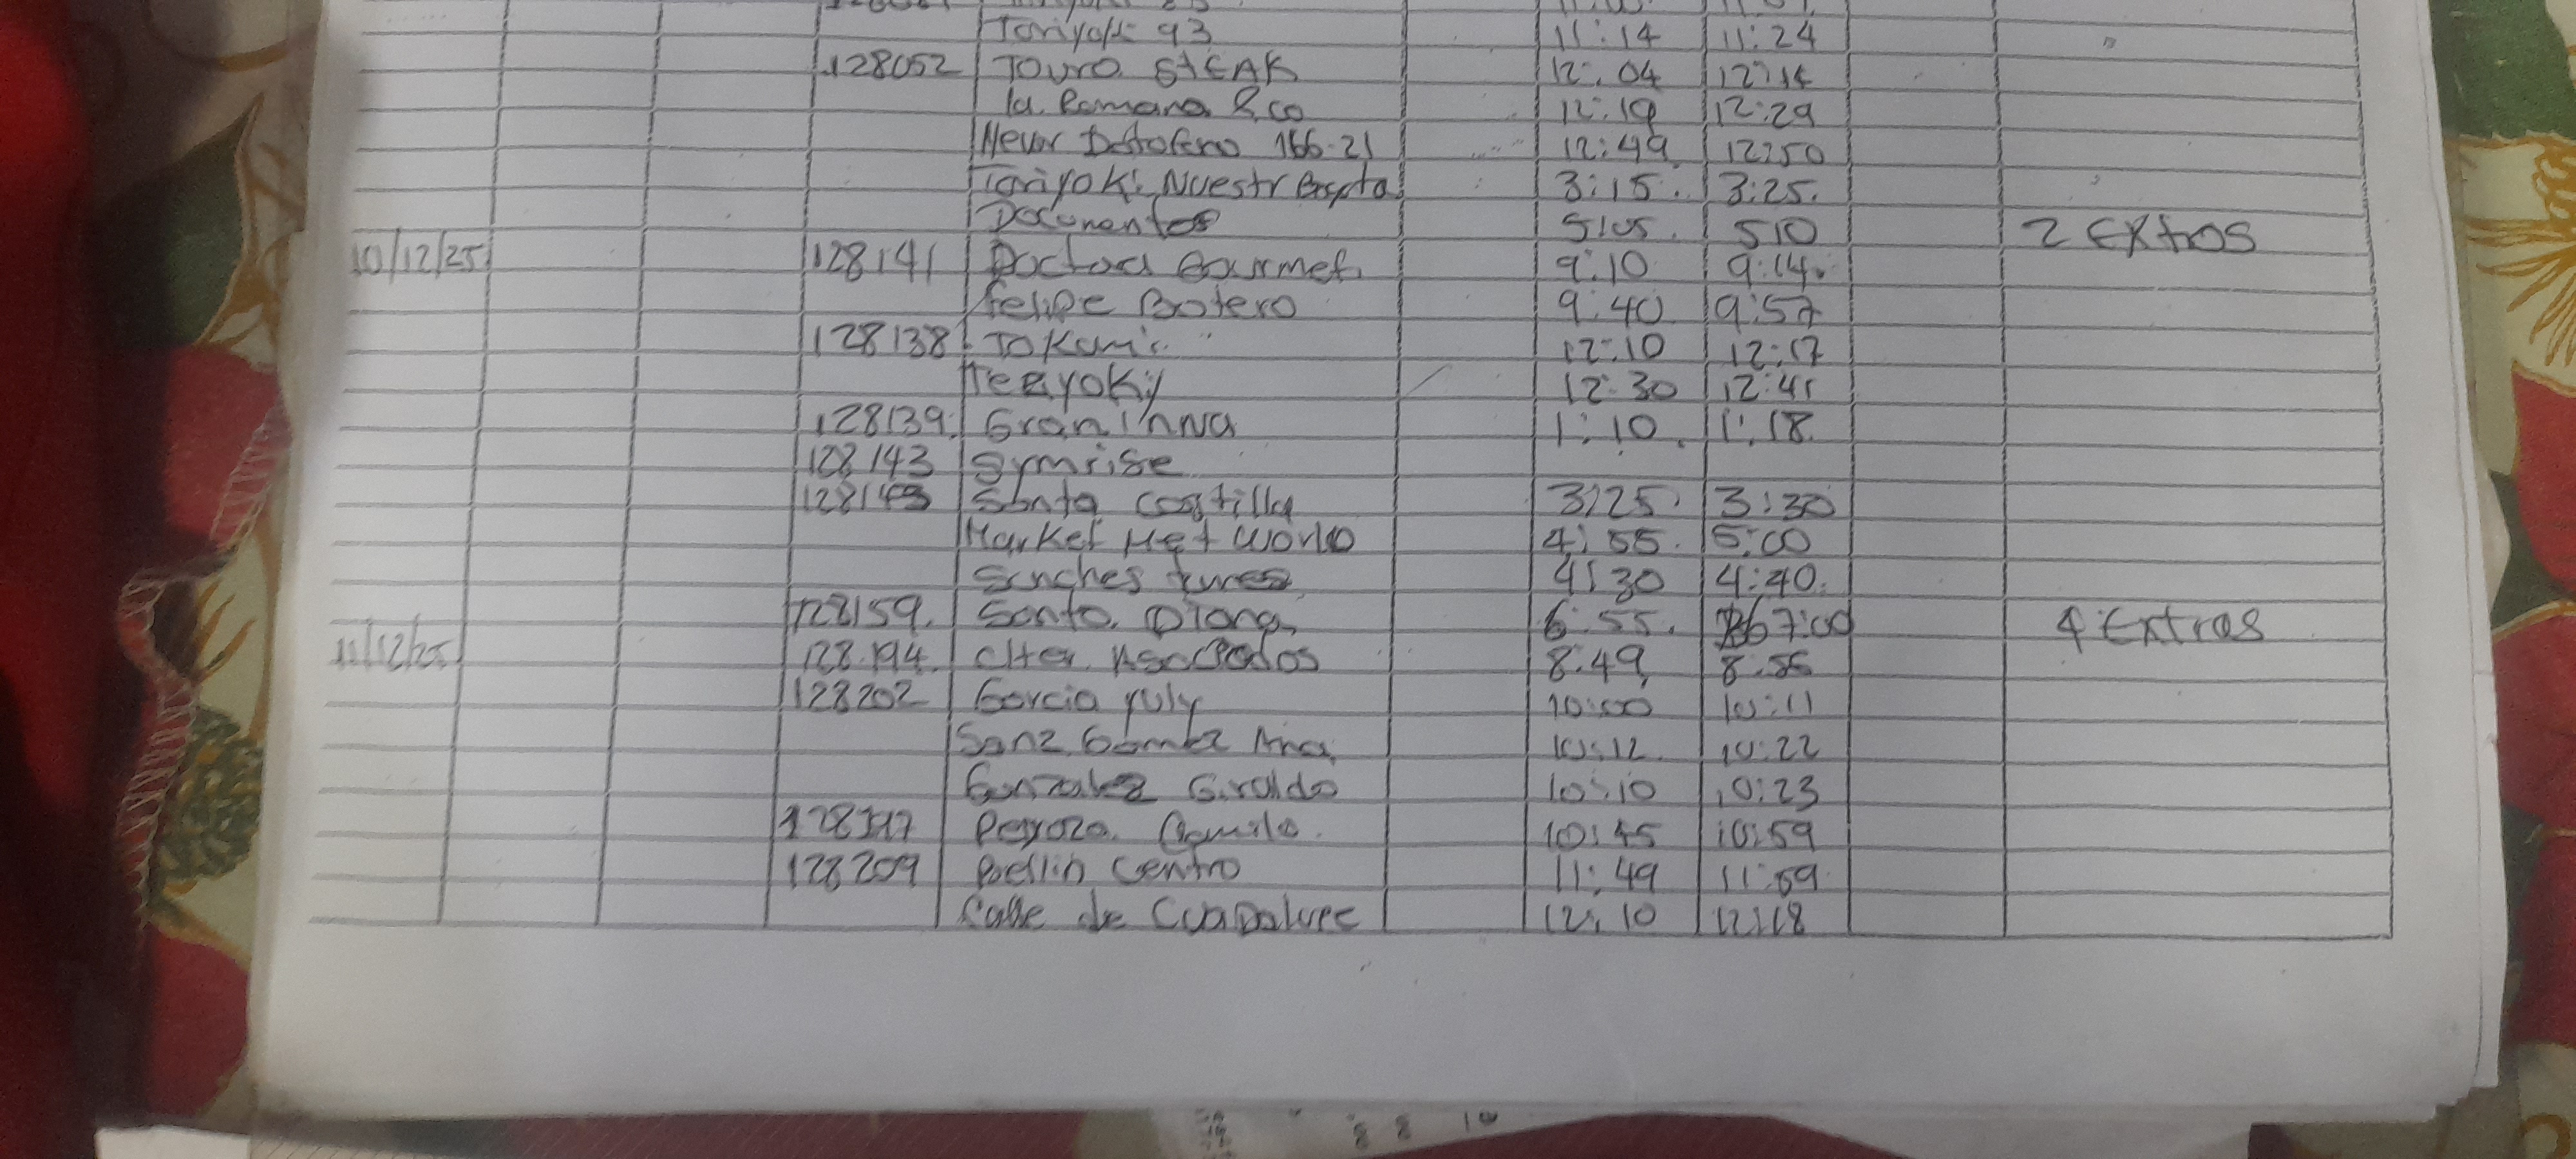 Toriyoki 93 11:14 11:24
128052 TOURO STEAK 12:04 12:14
la Romana & co 12:19 12:29
Nevar 166-21 12:49 12:50
Toriyoki 3:15 3:25
Documentos 5:05 510 2 Extras
10/12/25 128141 Gourmet 9:10 9:14
Felipe Botero 9:40 9:57
128138 TOKami 12:10 12:17
TeRyoKy 12:30 12:41
128139 Gran inna 1:10 1:18
128143 Symrise
Santa Costilla 3:25 3:30
Market World 4:55 5:00
Sanches 4:30 4:40
128159 Santa Diana 6:55 7:00 4 Extras
11/12/25 128194 8:49 8:56
128202 Garcia yuly 10:00 10:11
Sanz Gomez Ana 10:12 10:22
Gonzalez Giraldo 10:10 10:23
Camilo 10:45 10:59
128209 Centro 11:49 11:59
Calle de GuaDalupe 12:10 12:18
8 8 10